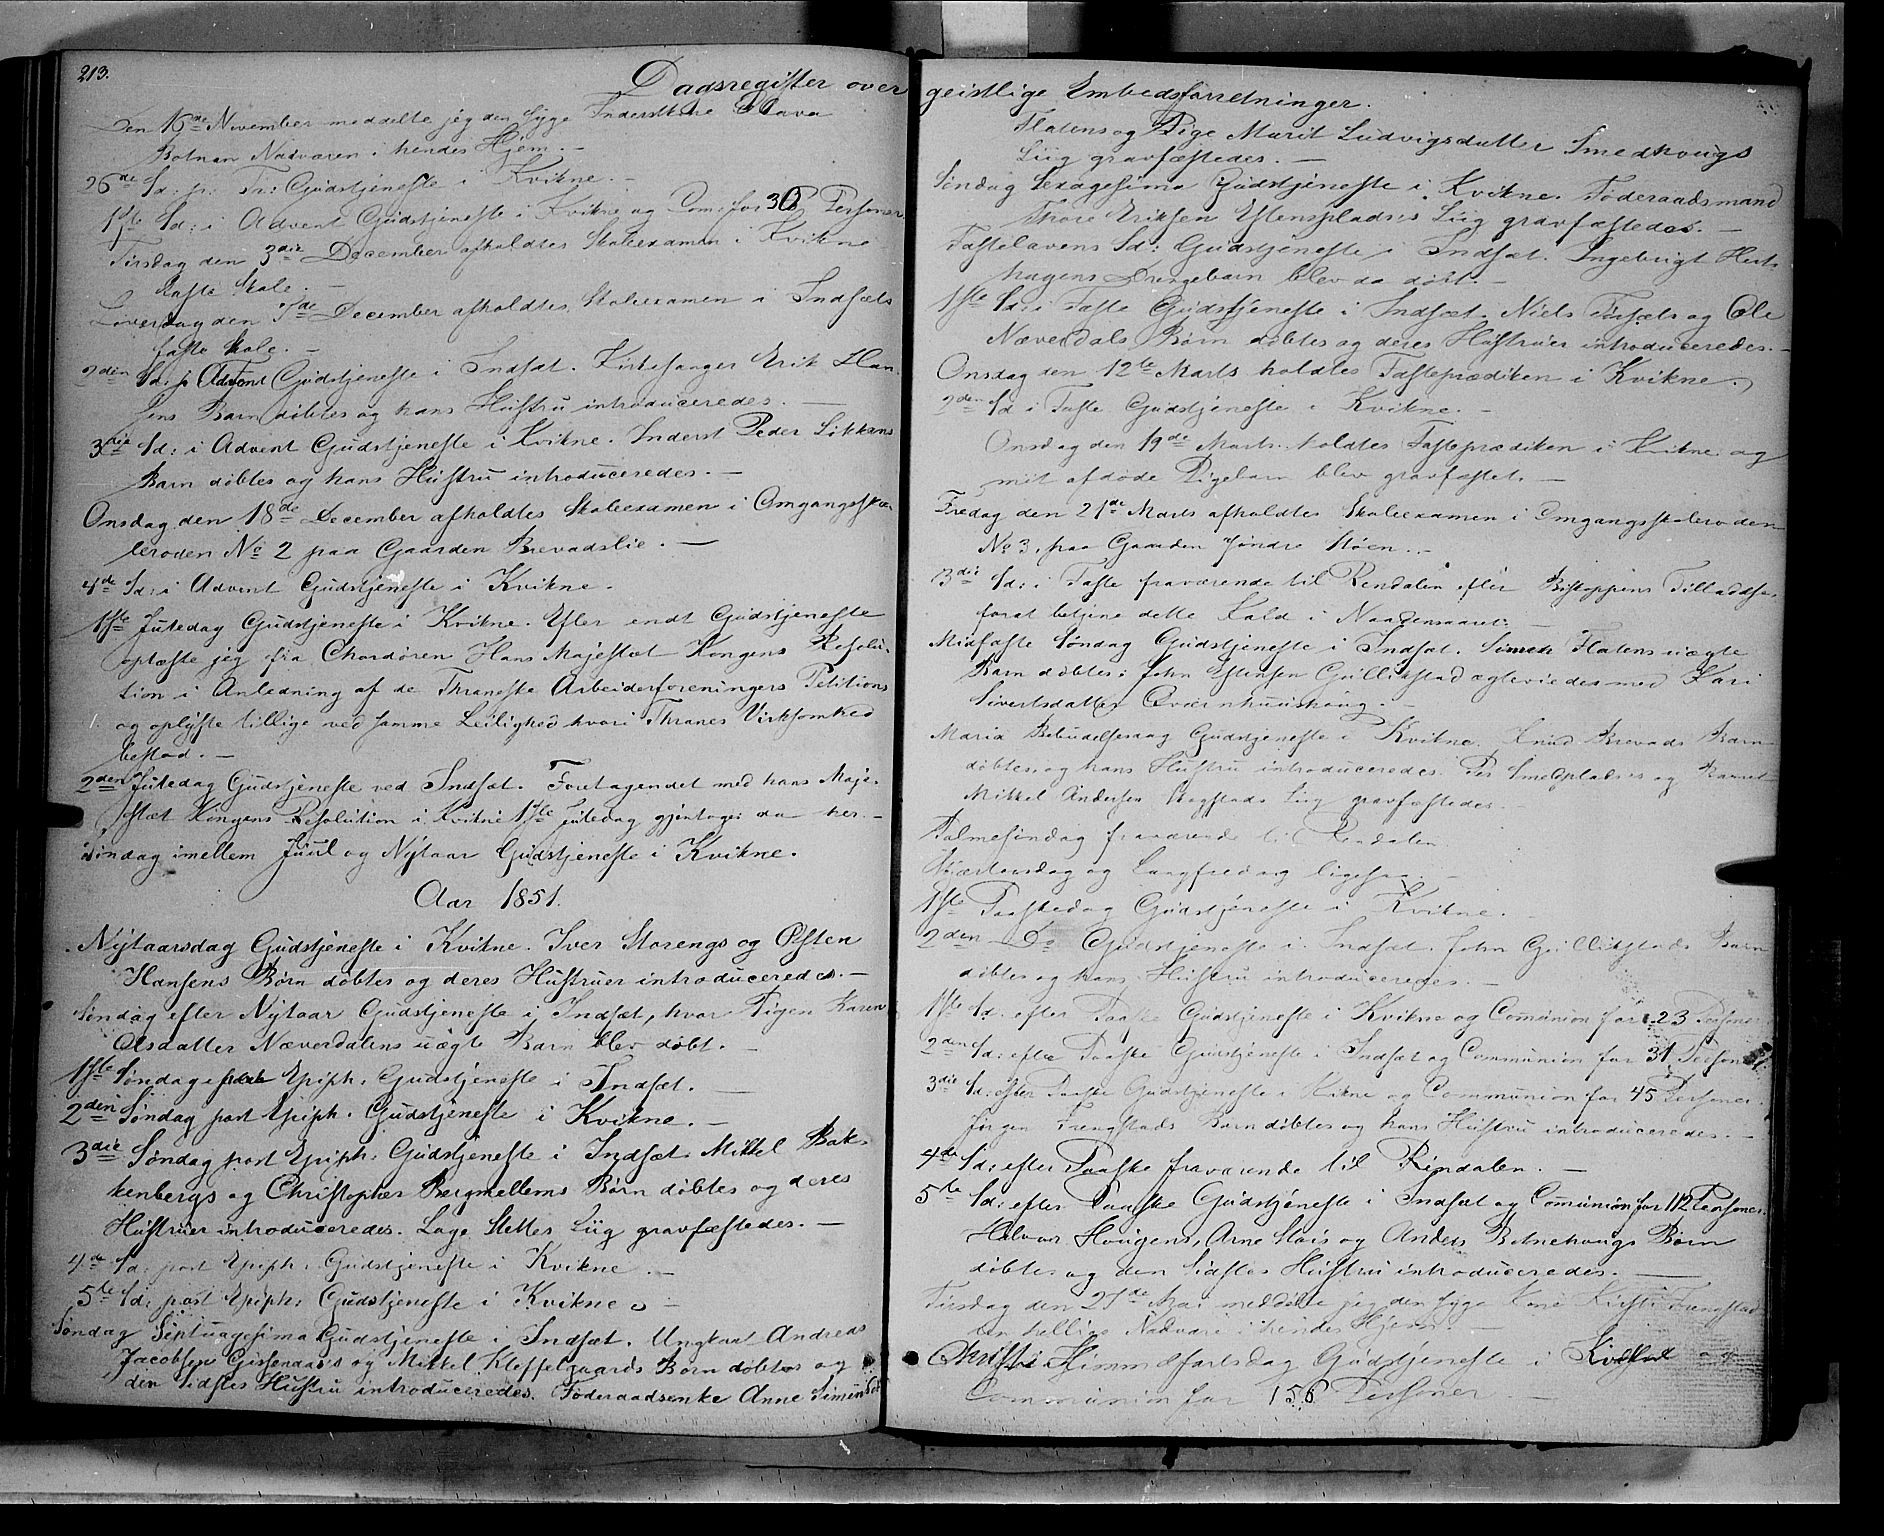 213.
Dagsregister over
Den 16de November meddelte jeg den syge Inderstkone Olava
Botnan Nadveren i hendes Hjem. —
26de Sd: p: Tr: Gudstjeneste i Kvikne. —
1ste Sd: i Advent Gudstjeneste i Kvikne og Com: for 30 Personer
Tirsdag den 3die December afholdtes Skoleexamen i Kvikne
faste Skole. —
Løverdag den 7de December afholdtes Skoleexamen i Indsets
faste Skole. —
2den Sd: i Advent Gudstjeneste i Indset. Kirkesanger Erik Han-
sens Barn døbtes og hans Hustru introduceredes. —
3die Sd: i Advent Gudstjeneste i Kvikne. Inderst Peder Likkens
Barn døbtes og hans Hustru introduceredes. —
Onsdag den 18de December afholdtes Skoleexamen i Omgangssko-
leroden No 2 paa Gaarden Brevadslie. —
4de Sd: i Advent Gudstjeneste i Kvikne.
1ste Juledag Gudstjeneste i Kvikne. Efter endt Gudstjeneste
oplæste jeg fra Chordøren Hans Majestæt Kongens Resolu-
tion i Anledning af de Thraneske Arbeiderforeningers Petitions
og oplyste tillige ved samme Leilighed hvori Thranes Virksomhed
bestod. —
2den Juledag Gudstjeneste ved Indset. Foretagendet med hans Maje-
stæt Kongens Resolution i Kvikne 1ste Juledag gjentoges da her. —
Søndag imellem Juul og Nytaar Gudstjeneste i Kvikne.
Aar 1851.
Nytaarsdag Gudstjeneste i Kvikne. Iver Storengs og Østen
Hansens Børn døbtes og deres Hustruer introduceredes. —
Søndag efter Nytaar Gudstjeneste i Indset, hvor Pigen Karen
Olsdatter Næverdalens uægte Barn blev døbt. —
1ste Søndag post Epiph: Gudstjeneste i Indset. —
2den Søndag post Epiph: Gudstjeneste i Kvikne. —
3die Søndag post Epiph: Gudstjeneste i Indset. Mikkel Bak-
kenbergs og Christopher Bergmellems Børn døbtes og deres
Hustruer introduceredes. Lage Stettes Liig gravfæstedes. —
4de Sd: post Epiph: Gudstjeneste i Kvikne. —
5te Sd: post Epiph: Gudstjeneste i Kvikne. —
Søndag Septuagesima Gudstjeneste i Indset. Ungkarl Andreas
Jacobsen og Mikkel Kleffelgaards Børn døbtes og
den Sidstes Hustru introduceredes. Føderaadsenke Anne Simens
geistlige Embedsforretninger.
Flatens og Pige Marit Ludvigsdatter Smedhougs
Liig gravfæstedes. —
Søndag Sexagesima Gudstjeneste i Kvikne. Føderaadsmand
Thore Eriksen Estensplads's Liig gravfæstedes. —
Fastelavens Sd: Gudstjeneste i Indset. Ingebrigt
hagens Drengebarn blev da døbt. —
1ste Sd: i Faste Gudstjeneste i Indset. Niels og Ole
Næverdals Børn døbtes og deres Hustruer introduceredes. —
Onsdag den 12te Marts holdtes Fasteprædiken i Kvikne.
2den Sd i Faste Gudstjeneste i Kvikne. —
Onsdag den 19de Marts holdtes Fasteprædiken i Kvikne og
mit afdøde Pigebarn blev gravfæstet. —
Fredag den 21de Marts afholdtes Skoleexamen i Omgangsskoleroden
No 3, paa Gaarden Jøndre Støen. —
3die Sd: i Faste fraværende til Rendalen efter Biskoppens Tilladelse
forat betjene dette Kald i Naadensaaret. —
Midfaste Søndag Gudstjeneste i Indset. Simen Flatens uægte
Barn døbtes; John Estensen Gullikstad ægteviedes med Kari
Sivertsdatter Qværnhuushoug. —
Mariæ Bebudelsesdag Gudstjeneste i Kvikne. Knud Brevads Barn
døbtes og hans Hustru introduceredes. Per Smedplads's og Barnet
Mikkel Andersen Liig gravfæstedes. —
Palmesøndag fraværende til Rendalen
Skjærtorsdag og Langfredag ligesaa. —
1ste Paaskedag Gudstjeneste i Kvikne. —
2den Do Gudstjeneste i Indset. John Gullikstads Barn
døbtes og hans Hustru introduceredes. —
1ste Sd: efter Paaske Gudstjeneste i Kvikne og Comunion for 23 Personer
2den Sd: efter Paaske Gudstjeneste i Indset og Communion for 31 Personer
3die Sd: efter Paaske Gudstjeneste i Kvikne og Communion for 45 Personer.
Jørgen Frengstads Barn døbtes og hans Hustru introduceredes. —
4de Sd: efter Paaske fraværende til Rendalen. —
5te Sd: efter Paaske Gudstjeneste i Indset og Comunion for 112 Personer.
Halvor Hougens, Arne Støis og Anders Botnehougs Børn
døbtes og den Sidstes Hustru introduceredes. —
Tirsdag den 27de Mai meddelte jeg den syge Kone Kirsti Frengstad
den hellige Nadvere i hendes Hjem. —
Christi Himmelfartsdag Gudstjeneste i Kvikne og
Communion for 156 Personer